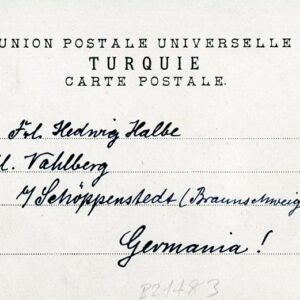 UNION POSTALE UNIVERSELLE
TURQUIE
CARTE POSTALE.
Frl. Hedwig Halbe
Vahlberg
Schöppenstedt (Braunschweig
Germania!
P21483